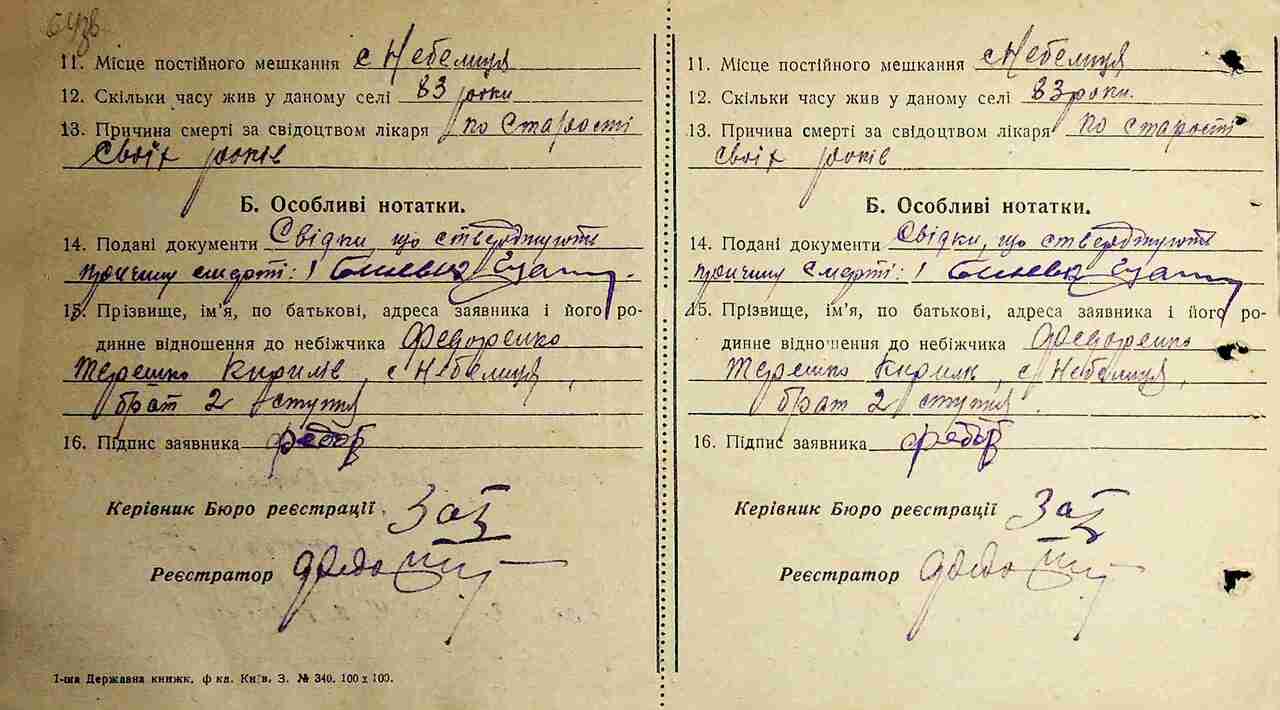 11. Місце постійного мешкання с Небелиця
12. Скільки часу жив у даному селі 83 роки
13. Причина смерті за свідоцтвом лікаря по старості
своїх років
Б. Особливі нотатки.
14. Подані документи Свідки, що стверджують
причину смерті:
15. Прізвище, ім'я, по батькові, адреса заявника і його ро-
динне відношення до небіжчика Федоренко
Терешко Кирилів, с Небелиця,
брат 2 ступня
16. Підпис заявника Федор
Керівник Бюро реєстрації
Реєстратор
1-ша Державна книжк. ф-ка. Київ. З. № 340. 100 х 100.
11. Місце постійного мешкання с Небелиця
12. Скільки часу жив у даному селі 83 роки.
13. Причина смерті за свідоцтвом лікаря по старості
своїх років
Б. Особливі нотатки.
14. Подані документи Свідки, що стверджують
причину смерті:
15. Прізвище, ім'я, по батькові, адреса заявника і його ро-
динне відношення до небіжчика Федоренко
Терешко Кирил, с Небелиця,
брат 2 ступня.
16. Підпис заявника Федор
Керівник Бюро реєстрації
Реєстратор